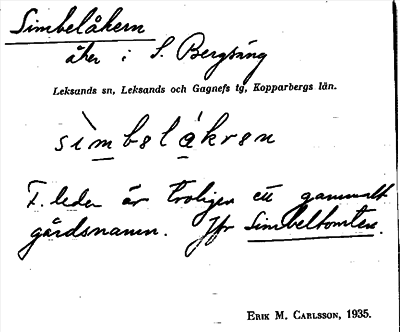 Simbelåkern
åker i S. Bergsäng
Leksands sn, Leksands och Gagnefs tg, Kopparbergs län.
sìmbəlákrən
F. leden är troligen ett gammalt
gårdsnamn. Jfr Simbeltomten.
ERIK M. CARLSSON, 1935.